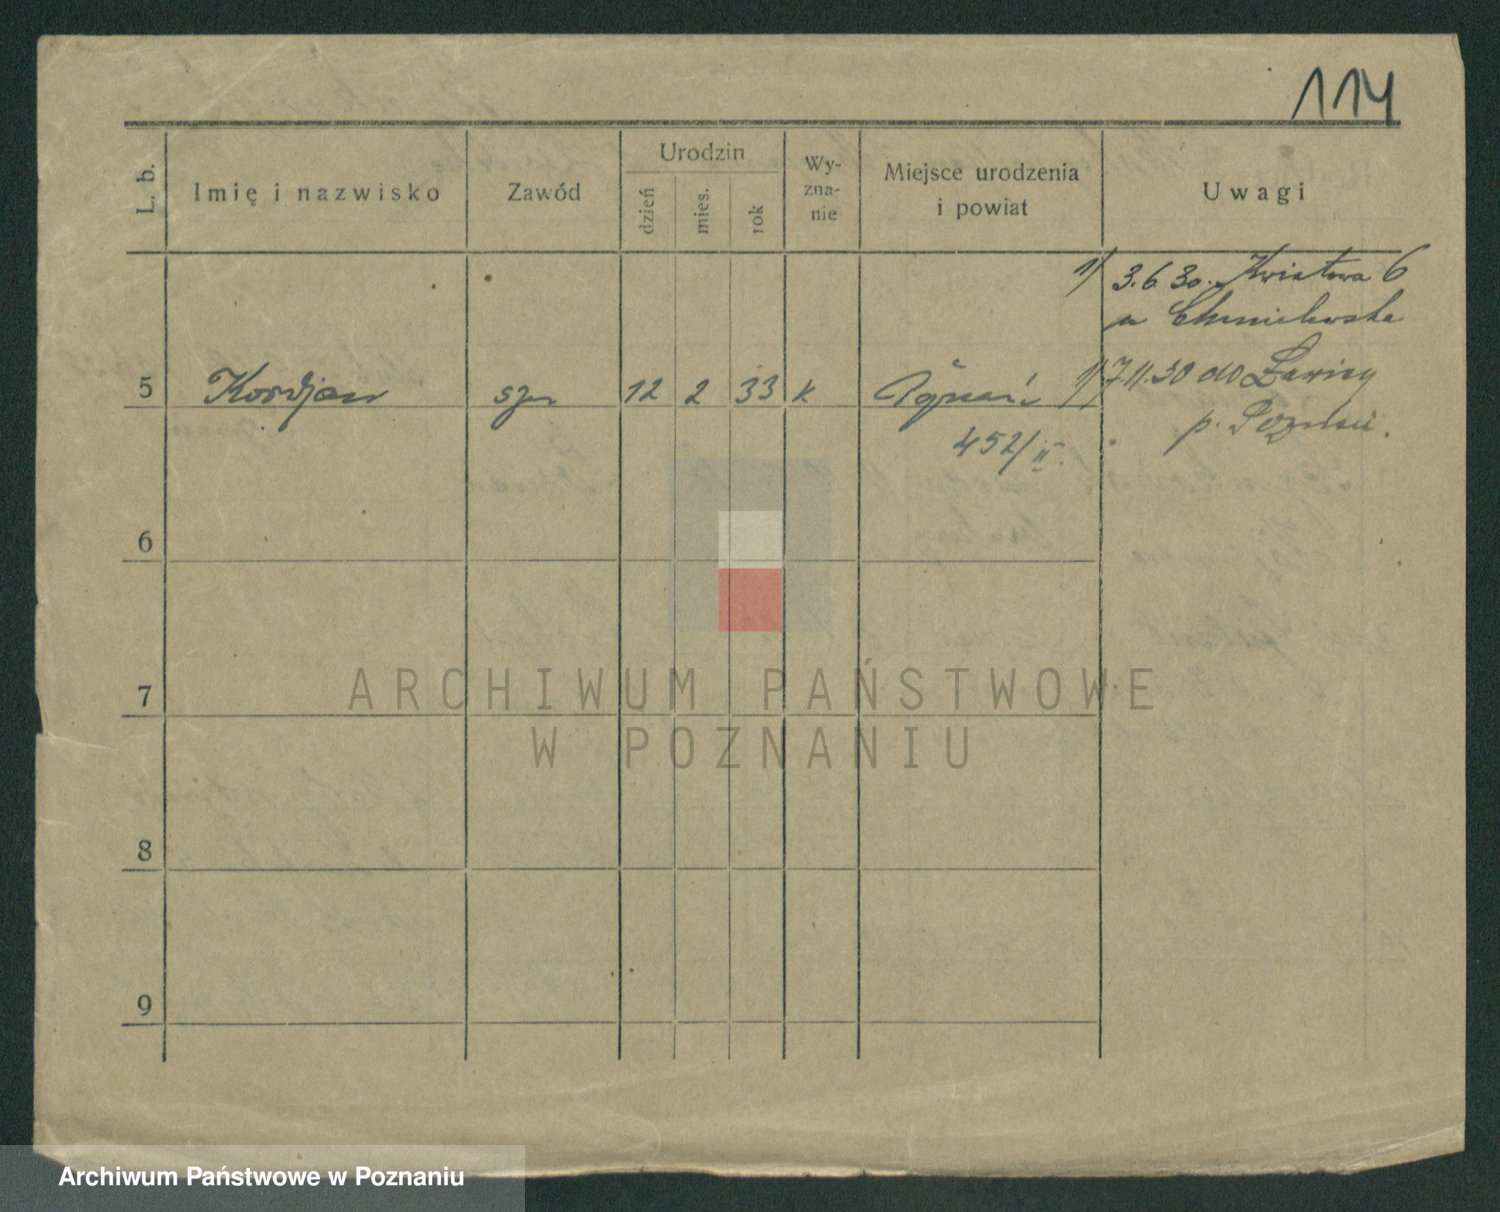 114
L. b.
Imię i nazwisko
Zawód
Urodzin
dzień
mies.
rok
Wy-
zna-
nie
Miejsce urodzenia
i powiat
Uwagi
1/ 3.6.30. Kwiatowa 6
u Chmielewska
5 Kordjan syn 12 2 33 k Poznań 1/ 7.11.30 do Ławicy
452/II. p. Poznań.
6
7
8
9
ARCHIWUM PAŃSTWOWE
W POZNANIU
Archiwum Państwowe w Poznaniu